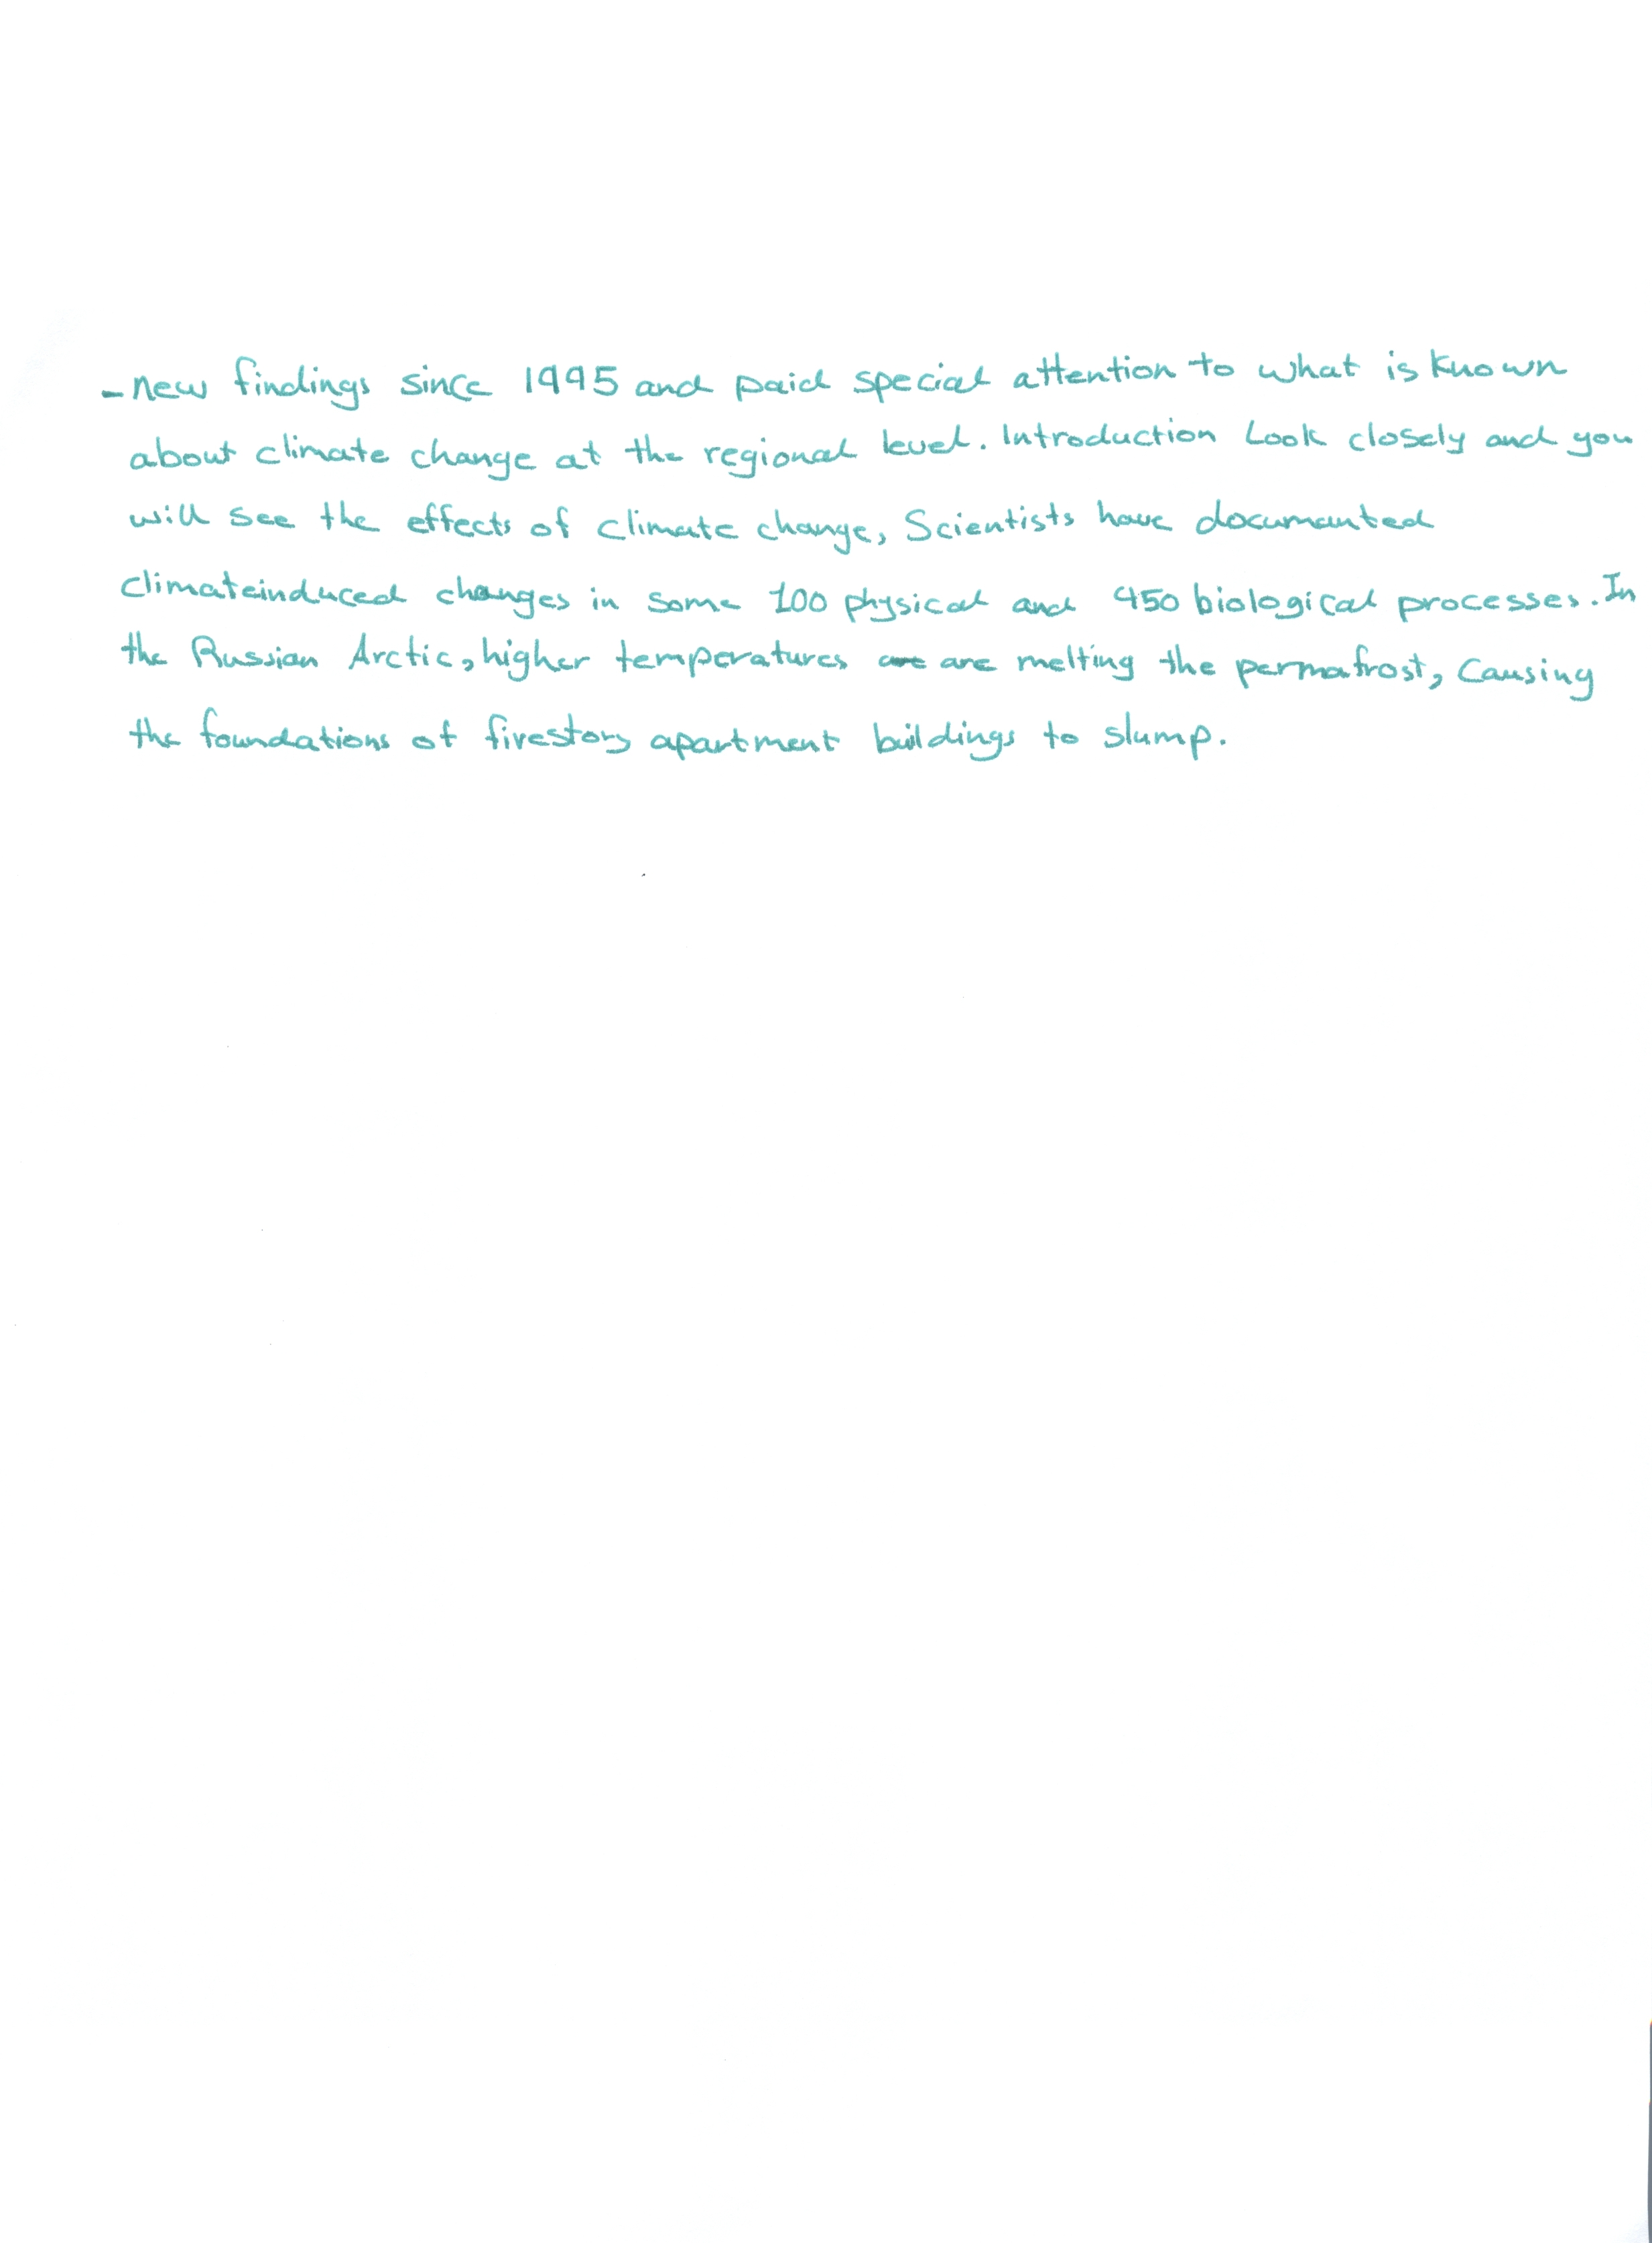 - new findings since 1995 and paid special attention to what is known
about climate change at the regional level. Introduction Look closely and you
will see the effects of climate change, Scientists have documanted
climateinduced changes in some 100 physical and 450 biological processes. In
the Russian Arctic, higher temperatures are are melting the permafrost, Causing
the foundations of firestory apartment buildings to slump.